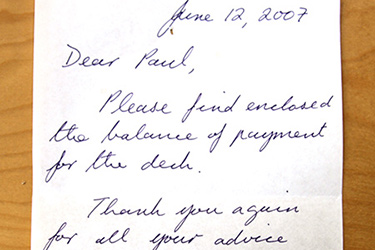 June 12, 2007
Dear Paul,
Please find enclosed
the balance of payment
for the deck.
Thank you again
for all your advice